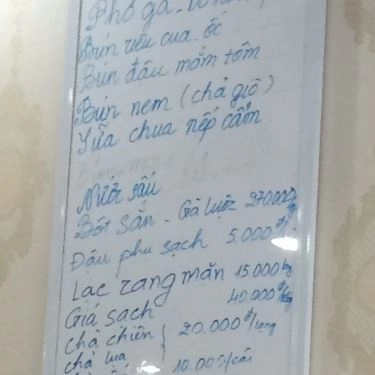 Phở gà
Bún riêu cua ốc
Bún đậu mắm tôm
Bún nem (chả giò)
Sữa chua nếp cẩm
Nước sấu
Bột sắn - Gà luộc 270.000đ/kg
Đậu phụ sạch 5.000đ/
Lạc rang mặn 15.000
Giá sạch 40.000đ/kg
Chả chiên } 20.000đ/lạng
chả lụa
10.000đ/cái